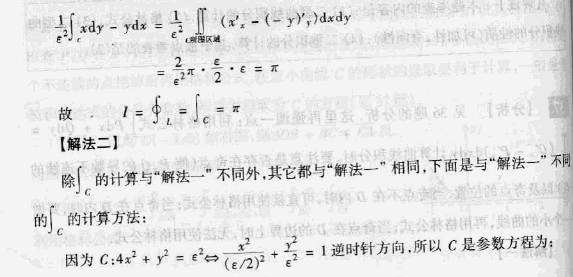 $\frac{1}{\varepsilon^2}\int_C xdy - ydx = \frac{1}{\varepsilon^2}\iint_{C所围区域}(x'_x - (-y)'_y)dxdy$
$= \frac{2}{\varepsilon^2}\pi \cdot \frac{\varepsilon}{2} \cdot \varepsilon = \pi$
故 $I = \oint_L = \oint_C = \pi$
【解法二】
除$\int_C$的计算与“解法一”不同外,其它都与“解法一”相同,下面是与“解法一”不同
的$\int_C$的计算方法:
因为 $C:4x^2 + y^2 = \varepsilon^2 \Leftrightarrow \frac{x^2}{(\varepsilon/2)^2} + \frac{y^2}{\varepsilon^2} = 1$ 逆时针方向,所以 C 是参数方程为: